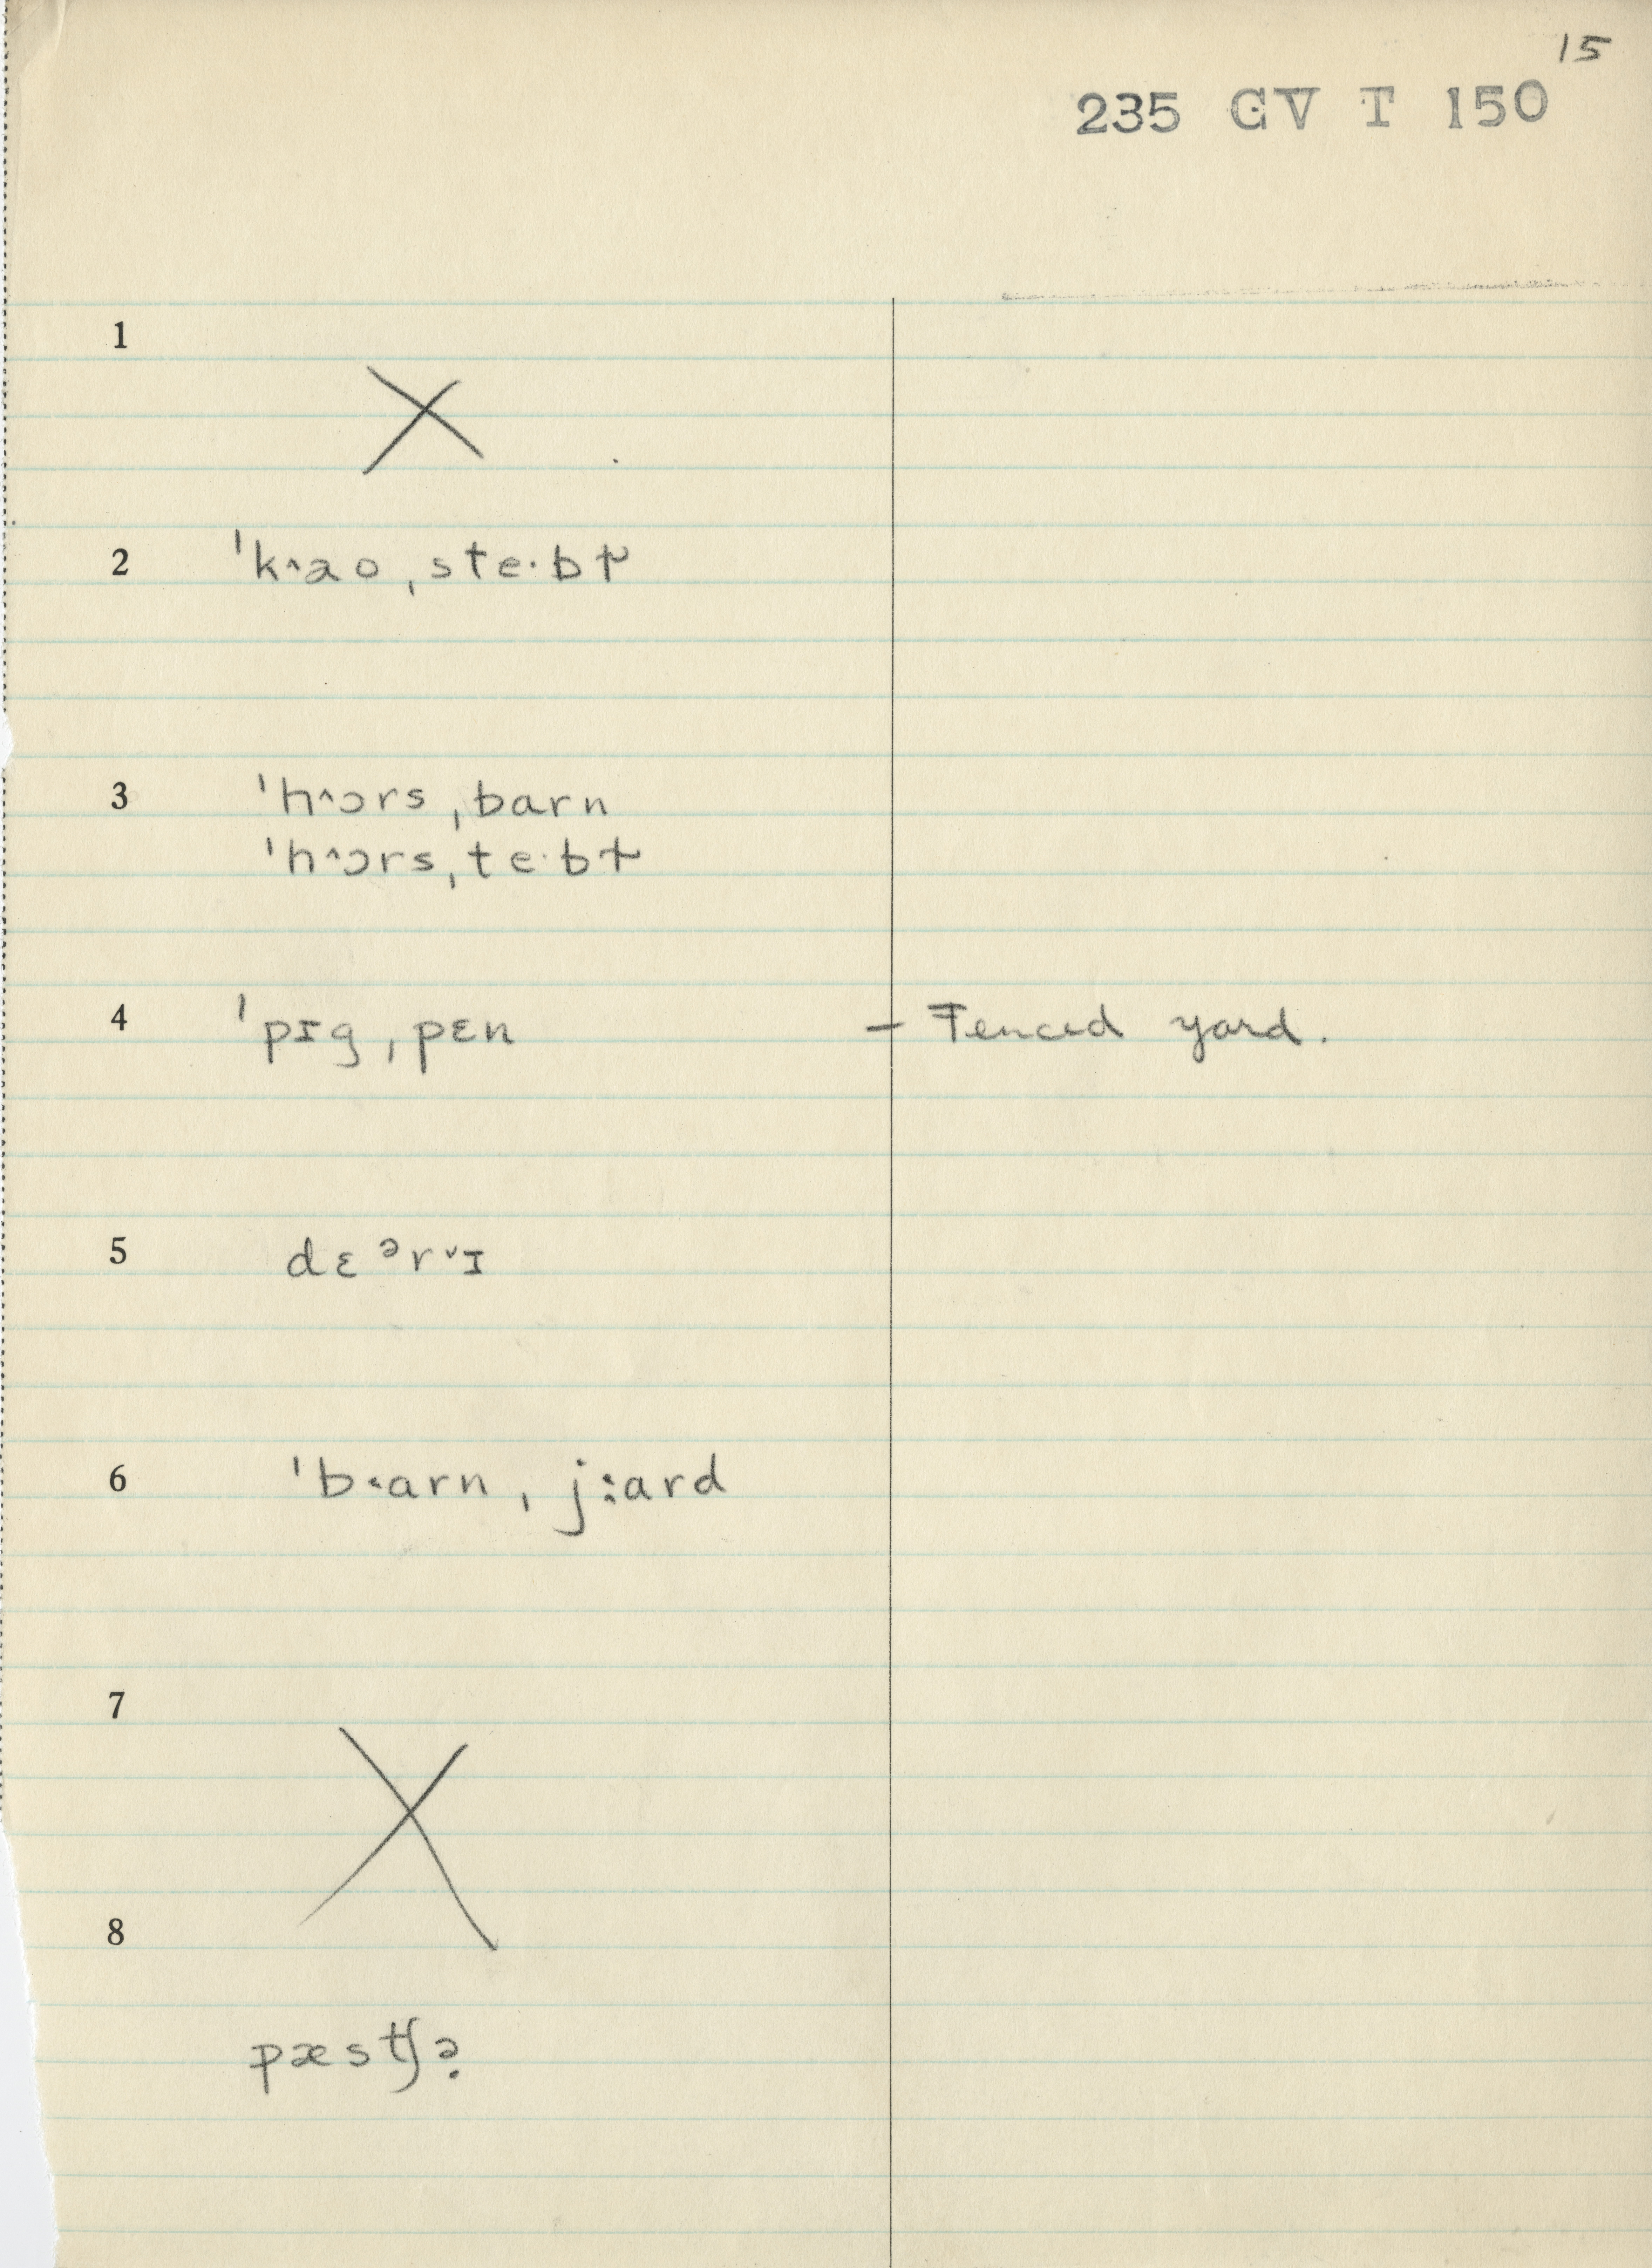 15
235 GV T 150
1
X
2 ˈk˄ao ˌste·bɫ
3 ˈh˄ɔrs ˌbarn
ˈh˄ɔrs ˌte·bɫ
4 ˈpɪg ˌpɛn — Fenced yard.
5 dɛᵊr˅ɪ
6 ˈb˂arn ˌj:ard
7
X
8
pæstʃə̣